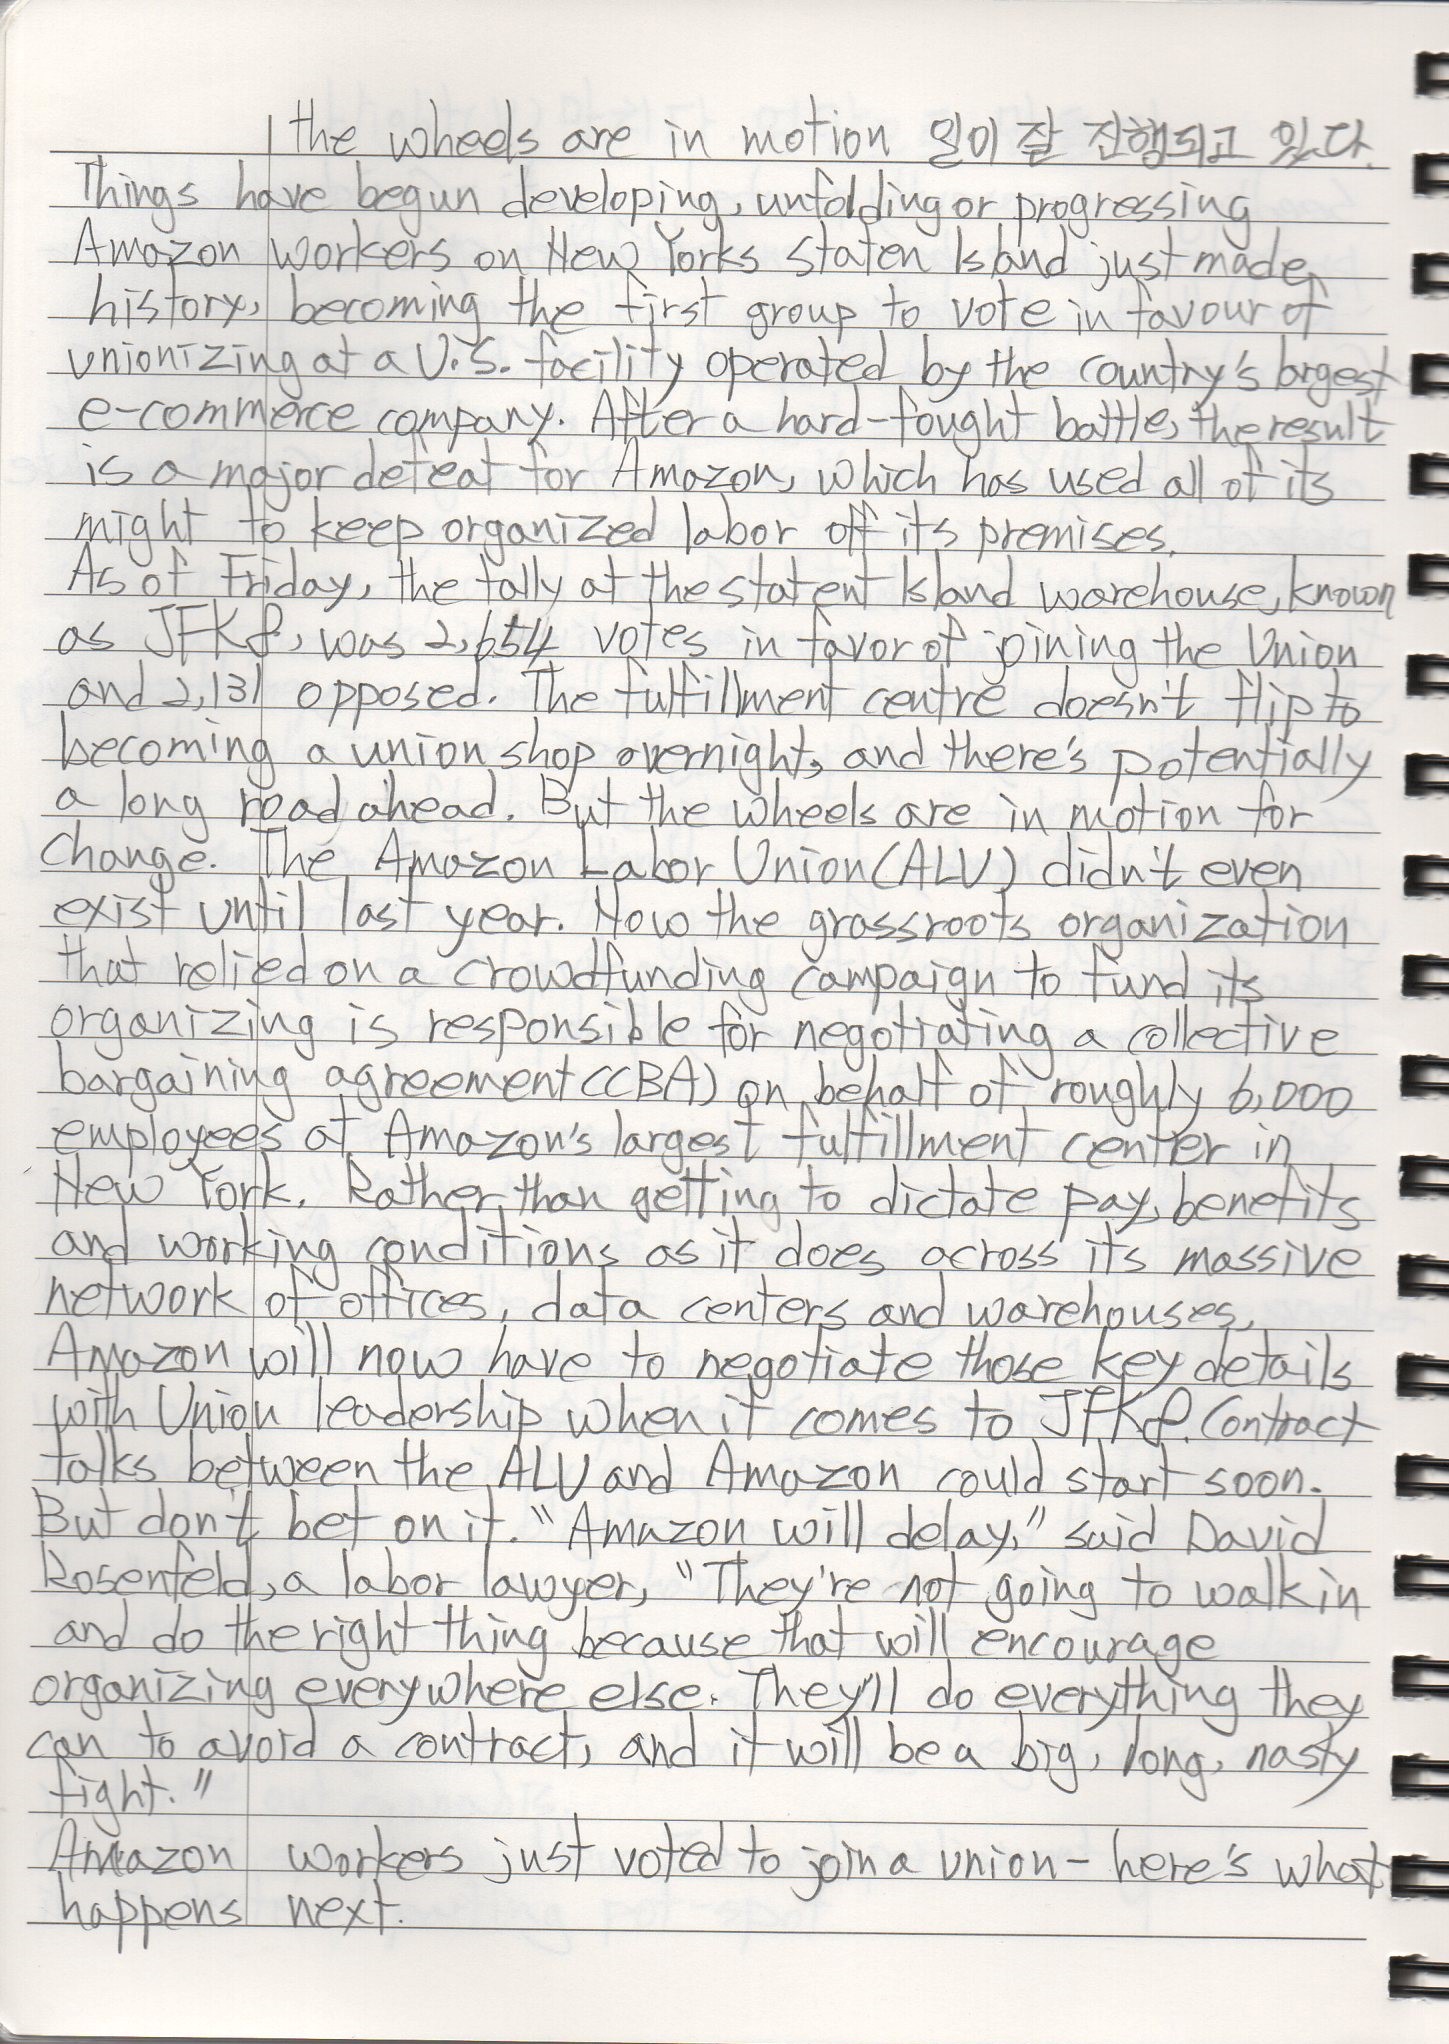 the wheels are in motion 일이 잘 진행되고 있다.
Things have begun developing, unfolding or progressing
Amazon workers on New Yorks Staten Island just made
history, becoming the first group to vote in favour of
unionizing at a U.S. facility operated by the country's largest
e-commerce company. After a hard-fought battle, the result
is a major defeat for Amazon, which has used all of its
might to keep organized labor off its premises.
As of Friday, the tally at the statent Island warehouse, known
as JFK8, was 2,654 votes in favor of joining the Union
and 2,131 opposed. The fulfillment centre doesn't flip to
becoming a union shop overnight, and there's potentially
a long road ahead. But the wheels are in motion for
change. The Amazon Labor Union (ALU) didn't even
exist until last year. Now the grassroots organization
that relied on a crowdfunding campaign to fund its
organizing is responsible for negotiating a collective
bargaining agreement (CBA) on behalf of roughly 6,000
employees at Amazon's largest fulfillment center in
New York. Rather than getting to dictate pay, benefits
and working conditions as it does across its massive
network of offices, data centers and warehouses,
Amazon will now have to negotiate those key details
with Union leadership when it comes to JFK8. Contract
talks between the ALU and Amazon could start soon.
But don't bet on it. "Amazon will delay," said David
Rosenfeld, a labor lawyer, "They're not going to walk in
and do the right thing because that will encourage
organizing everywhere else. They'll do everything they
can to avoid a contract, and it will be a big, long, nasty
fight."
Amazon workers just voted to join a union - here's what
happens next.